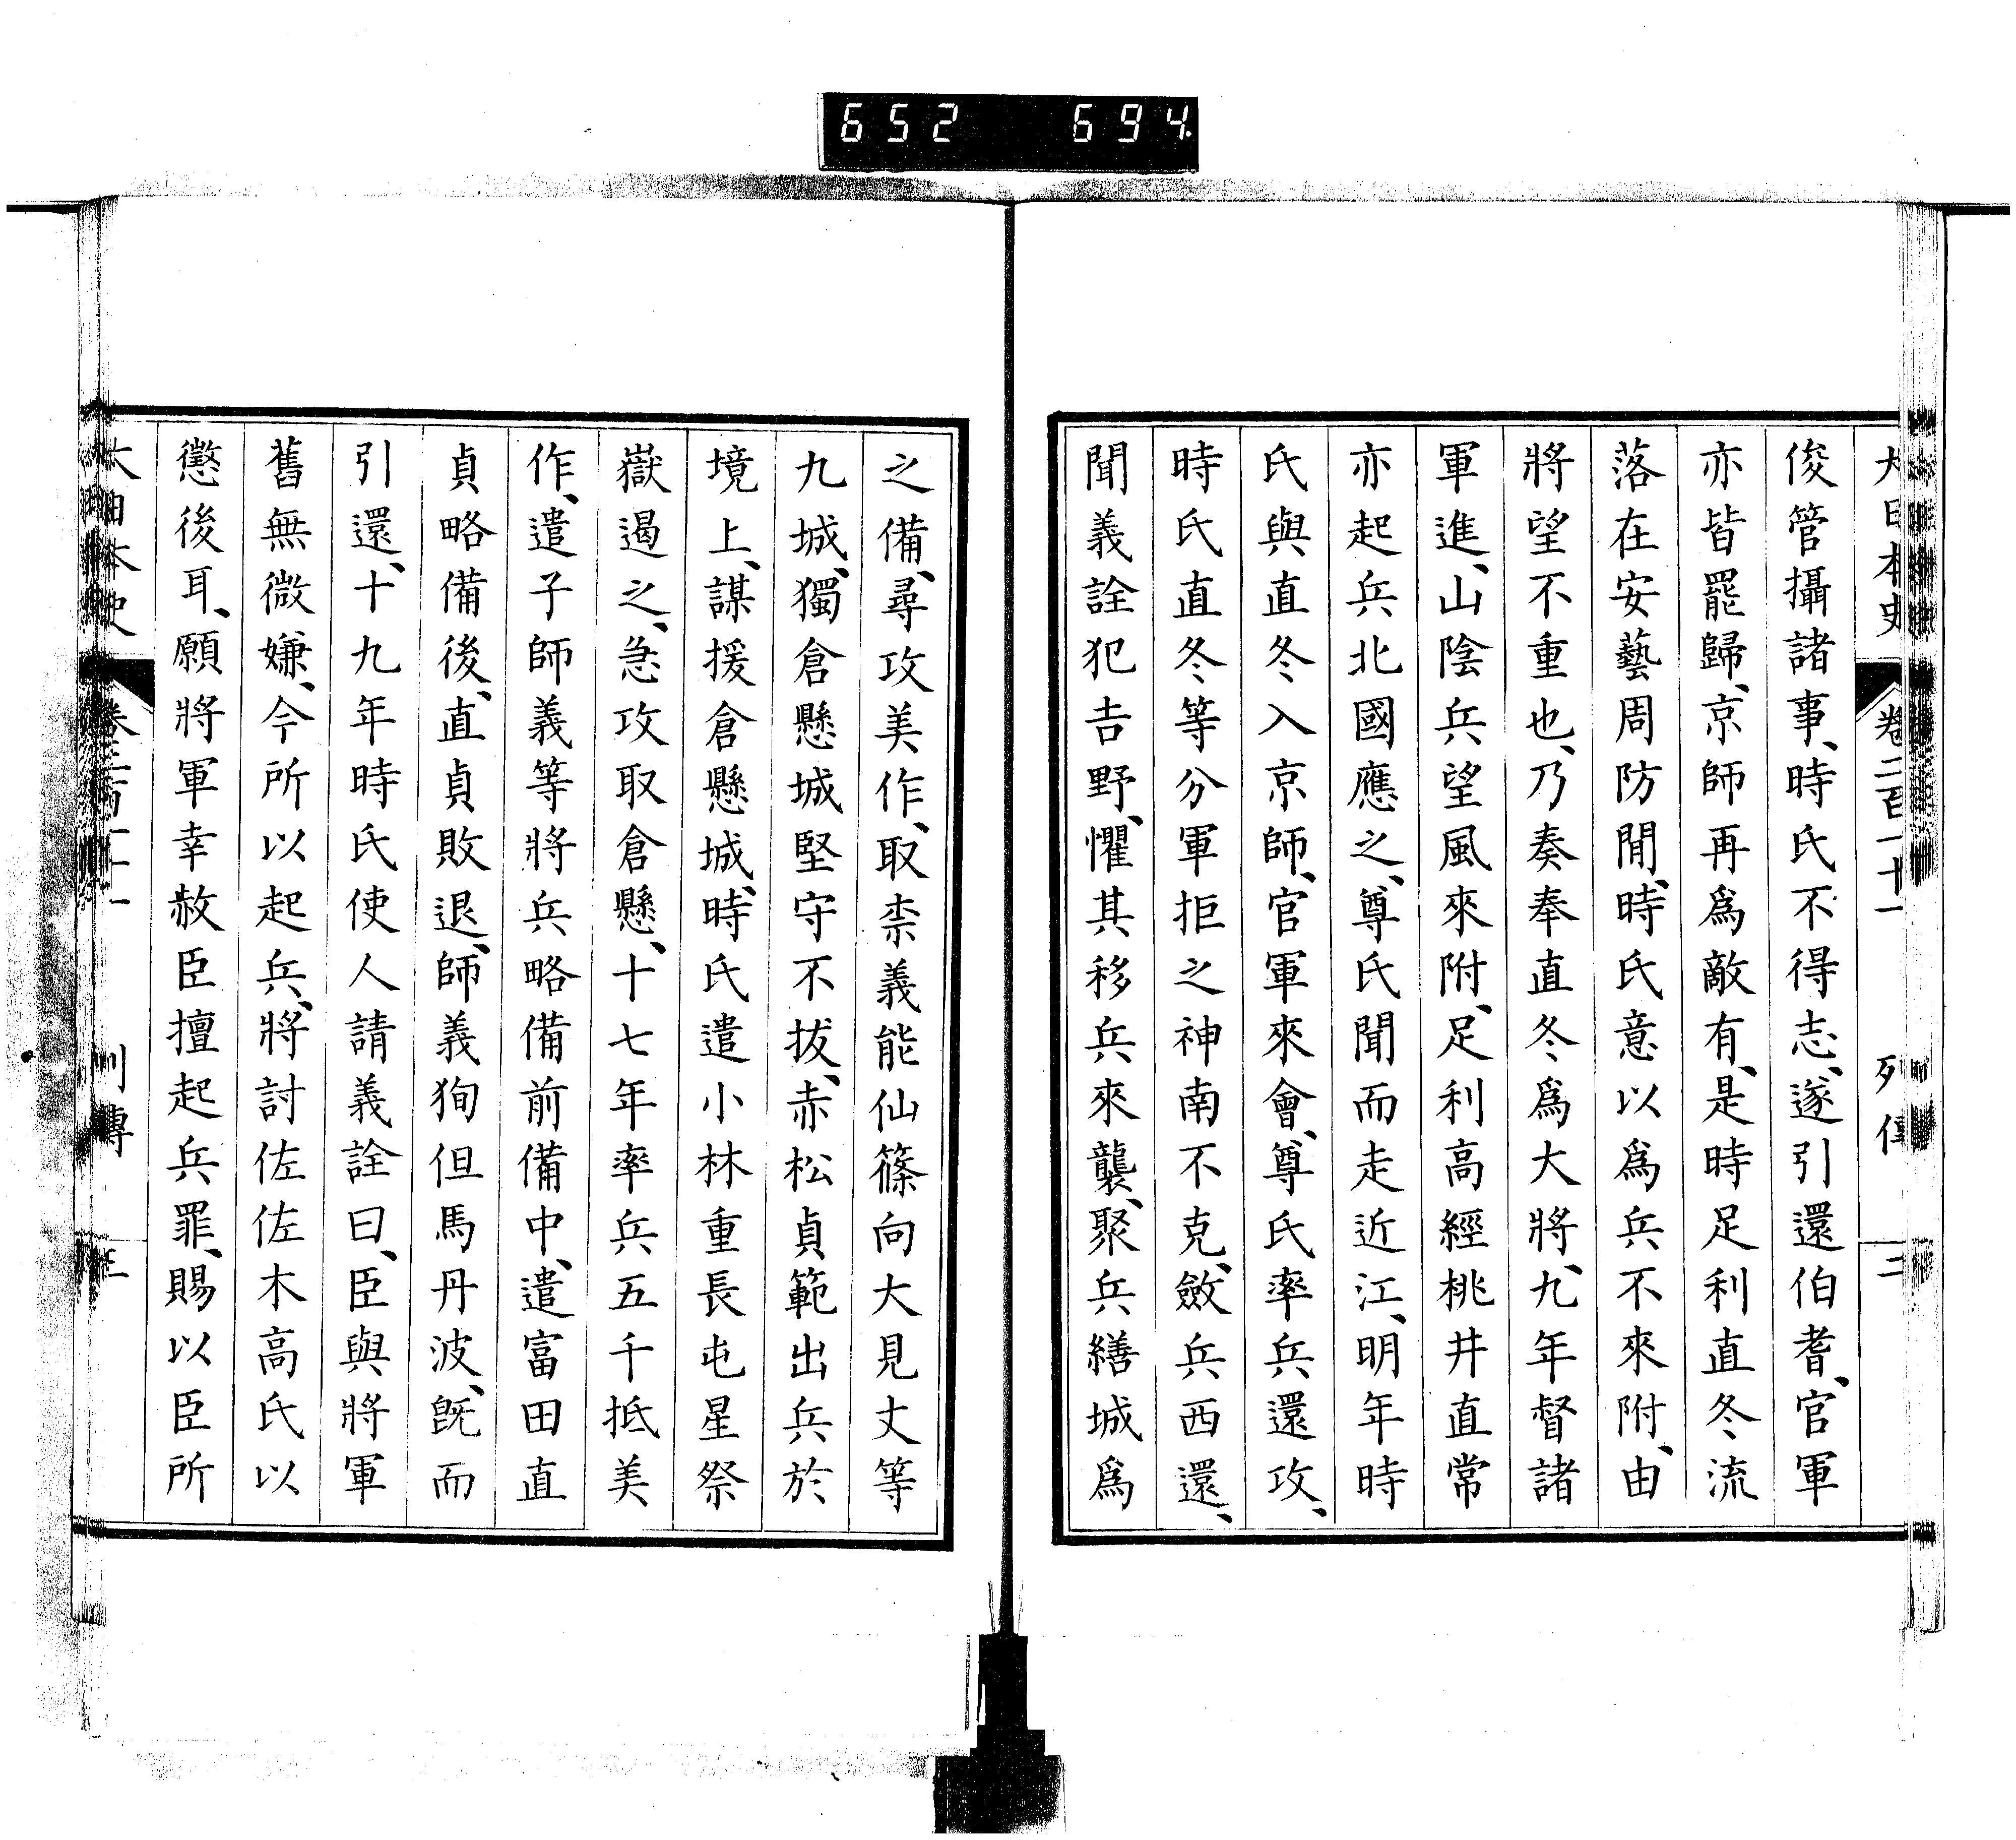 652 694
大日本史 卷二百一十一 列傳 二
俊管攝諸事、時氏不得志、遂引還伯耆、官軍
亦皆罷歸、京師再爲敵有、是時足利直冬流
落在安藝周防閒、時氏意以爲兵不來附、由
將望不重也、乃奏奉直冬爲大將、九年督諸
軍進、山陰兵望風來附、足利高經桃井直常
亦起兵北國應之、尊氏聞而走近江、明年時
氏與直冬入京師、官軍來會、尊氏率兵還攻、
時氏直冬等分軍拒之神南不克、斂兵西還、
聞義詮犯吉野、懼其移兵來襲、聚兵繕城爲
之備、尋攻美作、取柰義能仙篠向大見丈等
九城、獨倉懸城堅守不拔、赤松貞範出兵於
境上、謀援倉懸城、時氏遣小林重長屯星祭
嶽遏之、急攻取倉懸、十七年率兵五千抵美
作、遣子師義等將兵略備前備中、遣富田直
貞略備後、直貞敗退、師義狥但馬丹波、既而
引還、十九年時氏使人請義詮曰、臣與將軍
舊無微嫌、今所以起兵、將討佐佐木高氏以
懲後耳、願將軍幸赦臣擅起兵罪、賜以臣所
大日本史 卷二百一十一 列傳 三